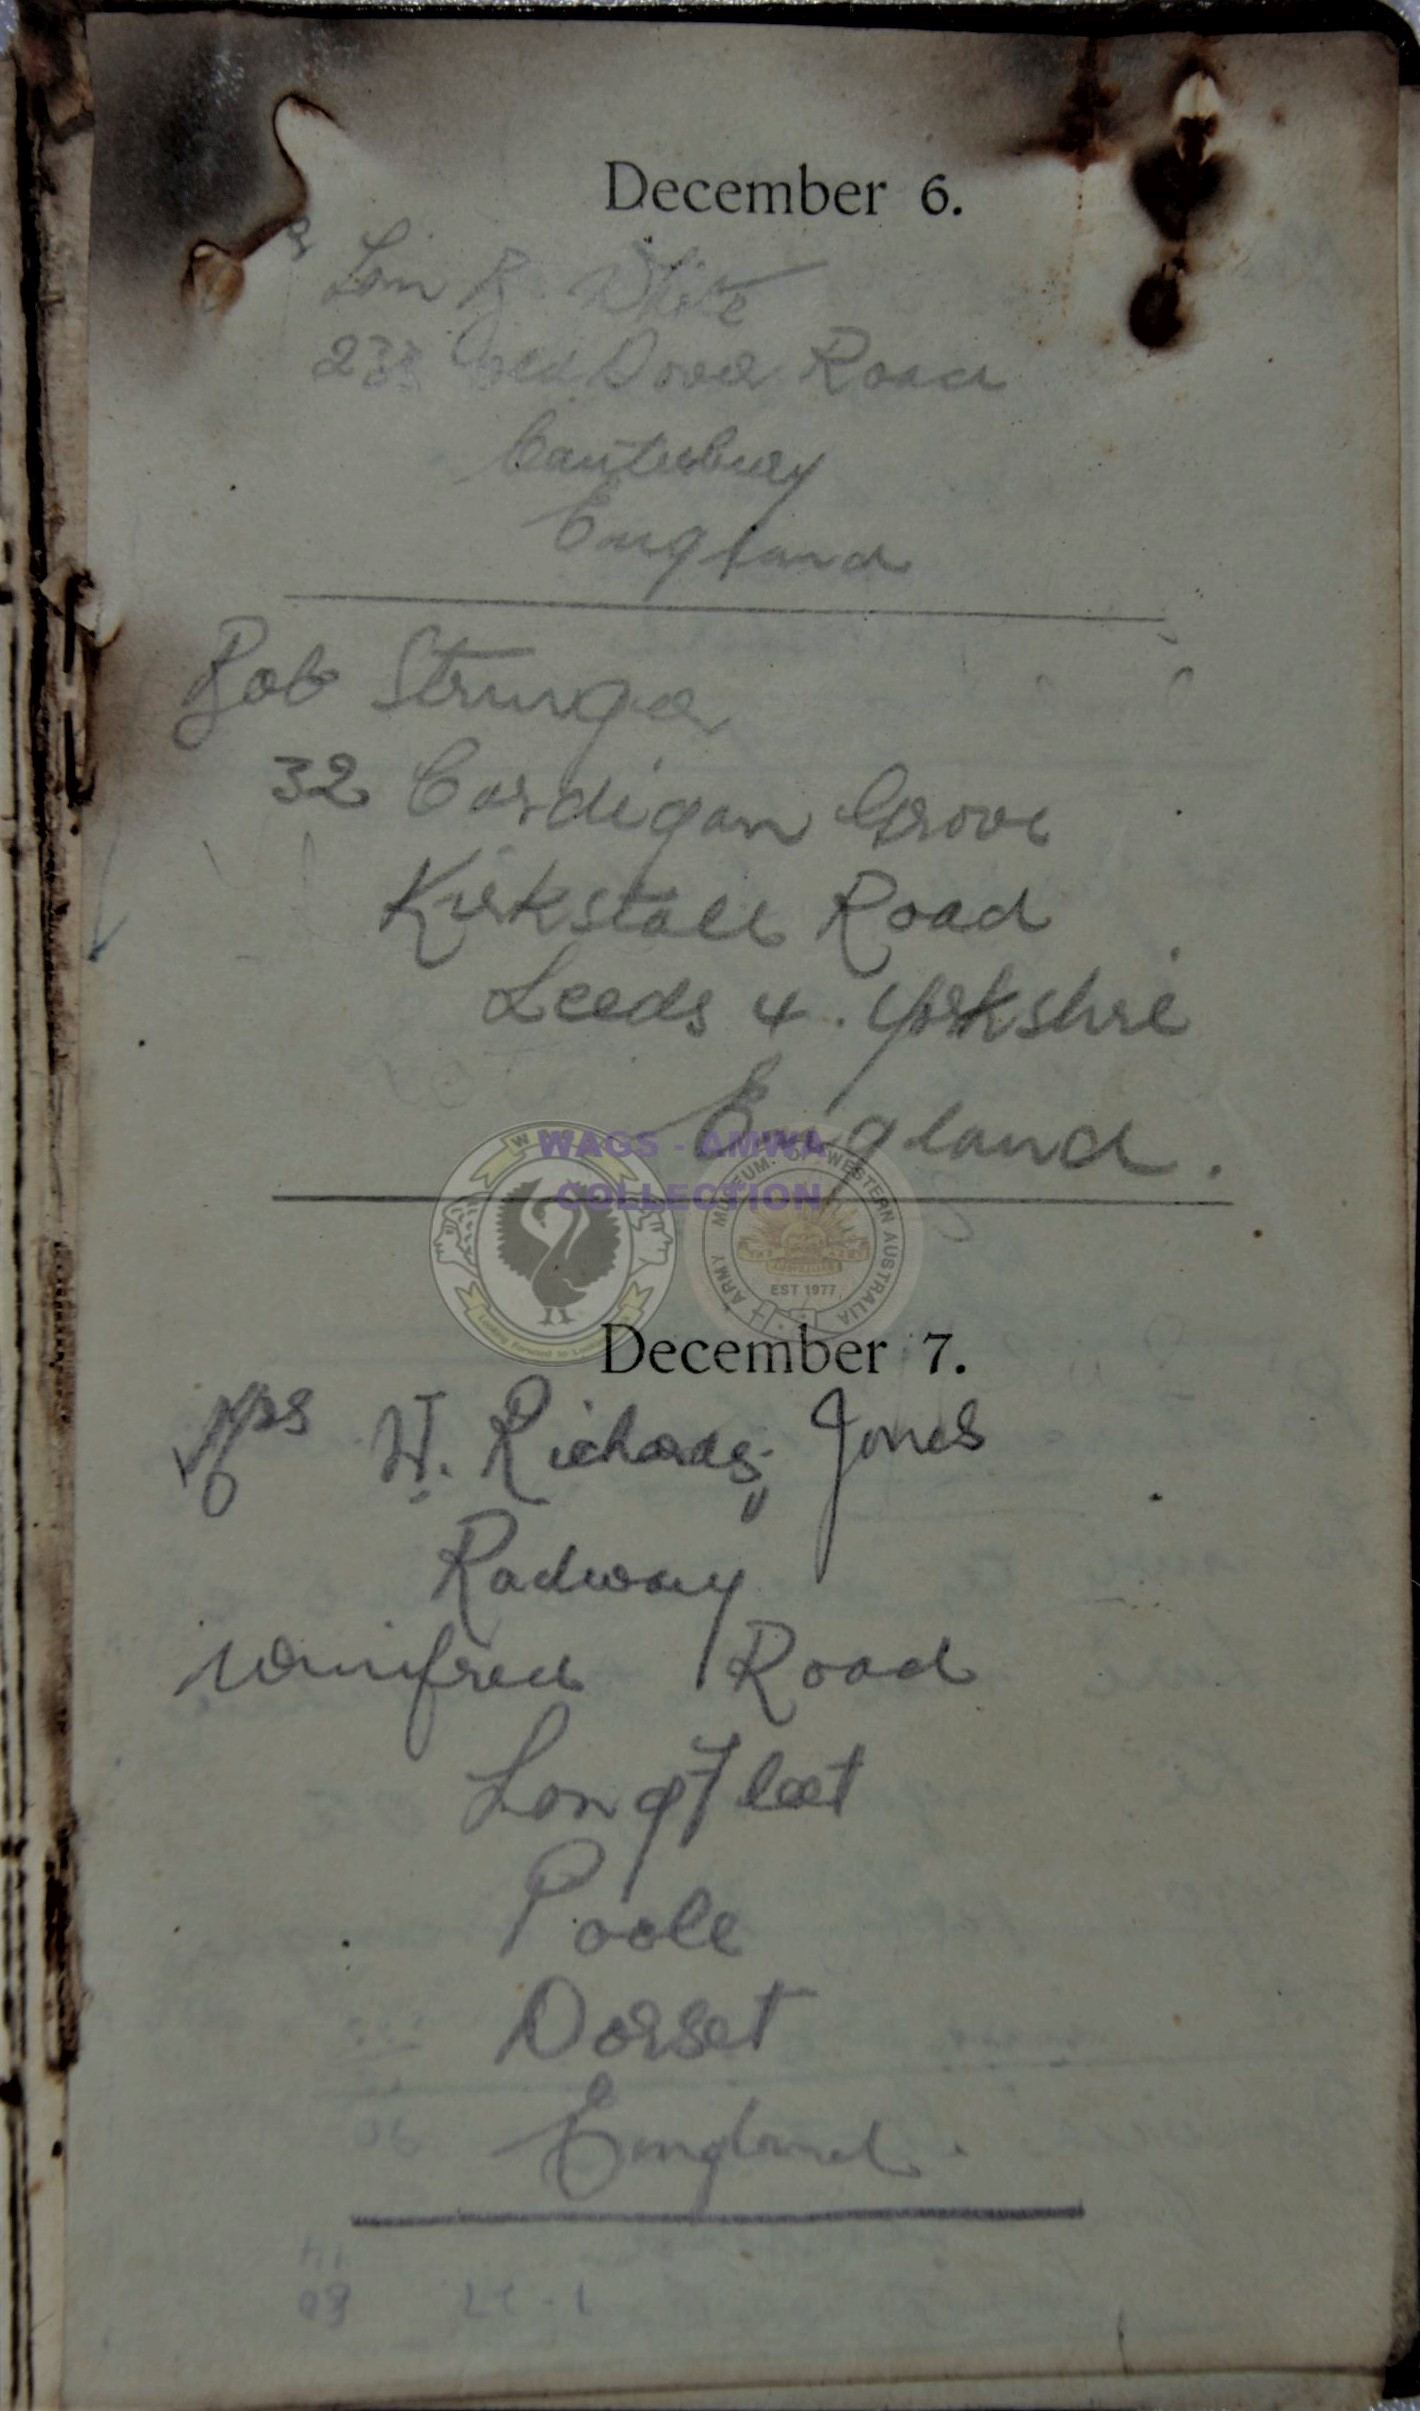 December 6.
R. White
Dover Road
Canterbury
England
Bob Stringer
32 Cardigan Grove
Kirkstall Road
Leeds 4. Yorkshire
England.
WAGS - AMWA
COLLECTION
ARMY MUSEUM OF WESTERN AUSTRALIA
EST 1977
December 7.
Mrs W. Richards Jones
Radway
Winifred Road
Longfleet
Poole
Dorset
England.